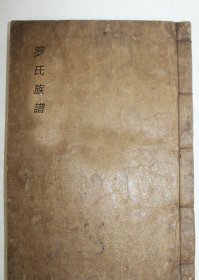 罗氏族譜